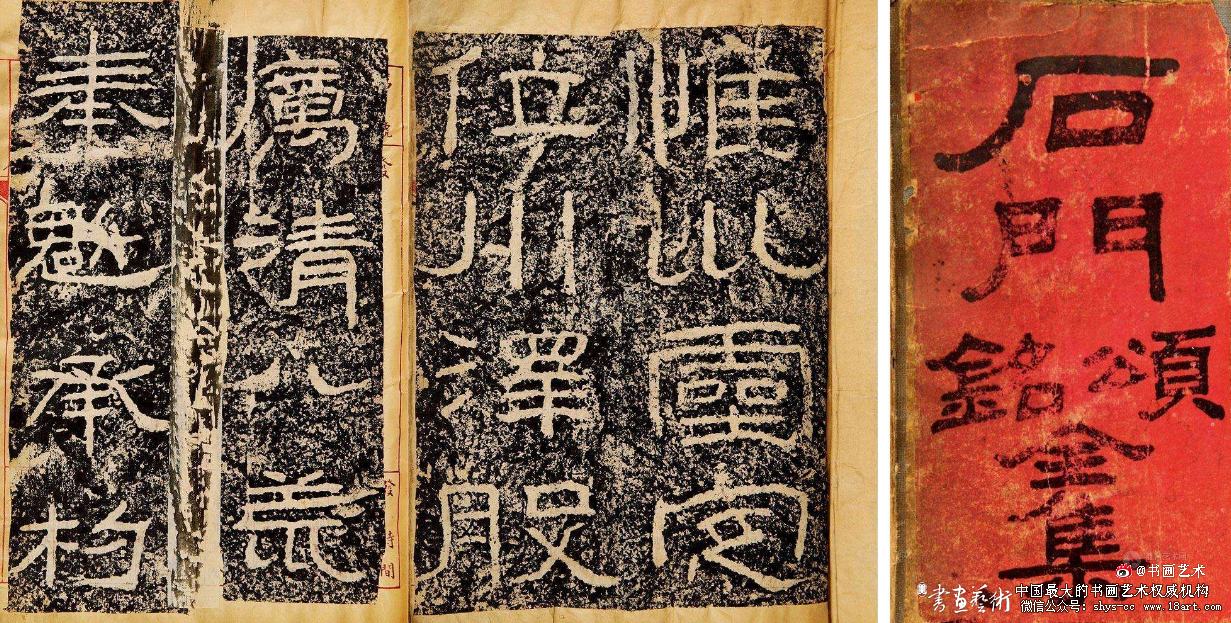 石門
頌
銘
惟巛靈定
位川澤股
厲清八荒
奉魁承杓
@书画艺术
書畫藝術
中国最大的书画艺术权威机构
微信公众号：shys-cc www.18art.com